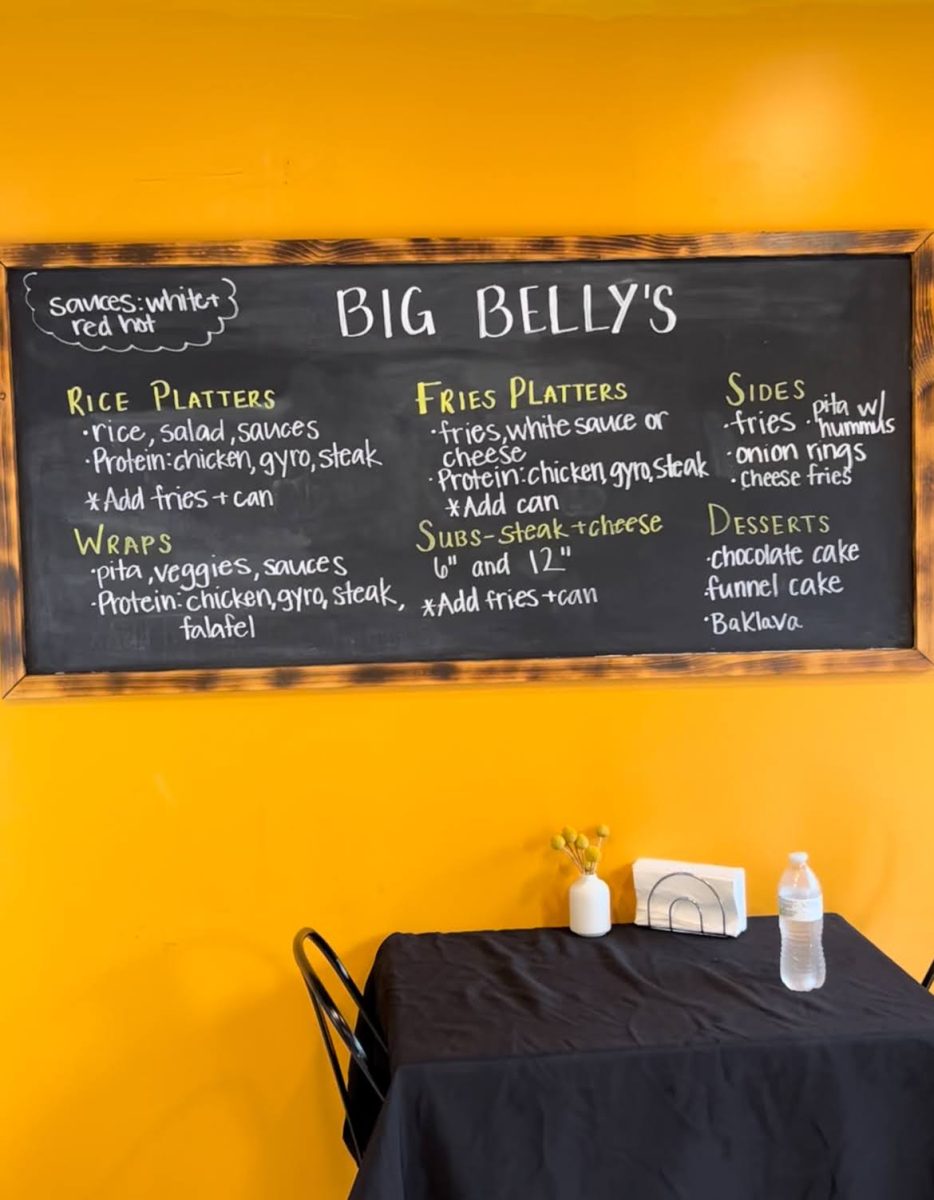 sauces: white +
red hot
BIG BELLY'S
RICE PLATTERS
·rice, salad, sauces
·Protein: chicken, gyro, steak
*Add fries + can
WRAPS
·pita, veggies, sauces
·Protein: chicken, gyro, steak,
falafel
FRIES PLATTERS
·fries, white sauce or
cheese
·Protein: chicken, gyro, steak
*Add can
SUBS - steak + cheese
6" and 12"
*Add fries + can
SIDES
·fries
·pita w/
hummus
·onion rings
·cheese fries
DESSERTS
·chocolate cake
·funnel cake
·Baklava